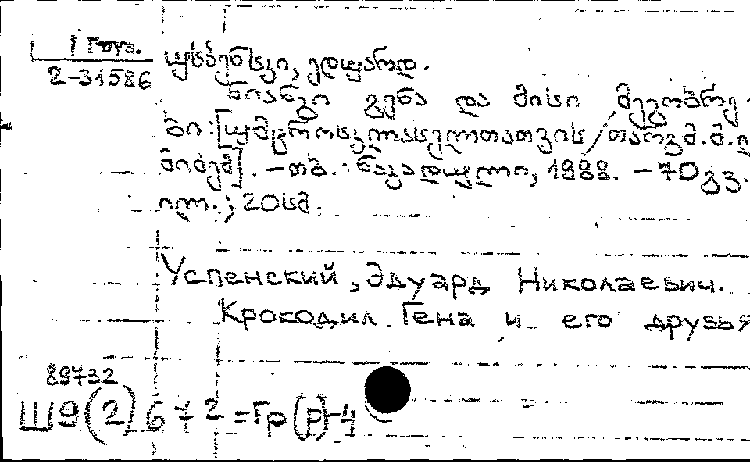 1 Груз.
2-31586
უსპენსკი, ედუარდ.
ნიანგი გენა და მისი მეგობრე-
ბი: [უმცროსკლასელთათვის / თარგმ. მ.
. – თბ.: ნაკადული, 1988. – 70 გვ.
ილ.; 20 სმ.
Успенский, Эдуард Николаевич.
Крокодил Гена и его друзья
89732
Ш9(2)672=Гр(Р)-4